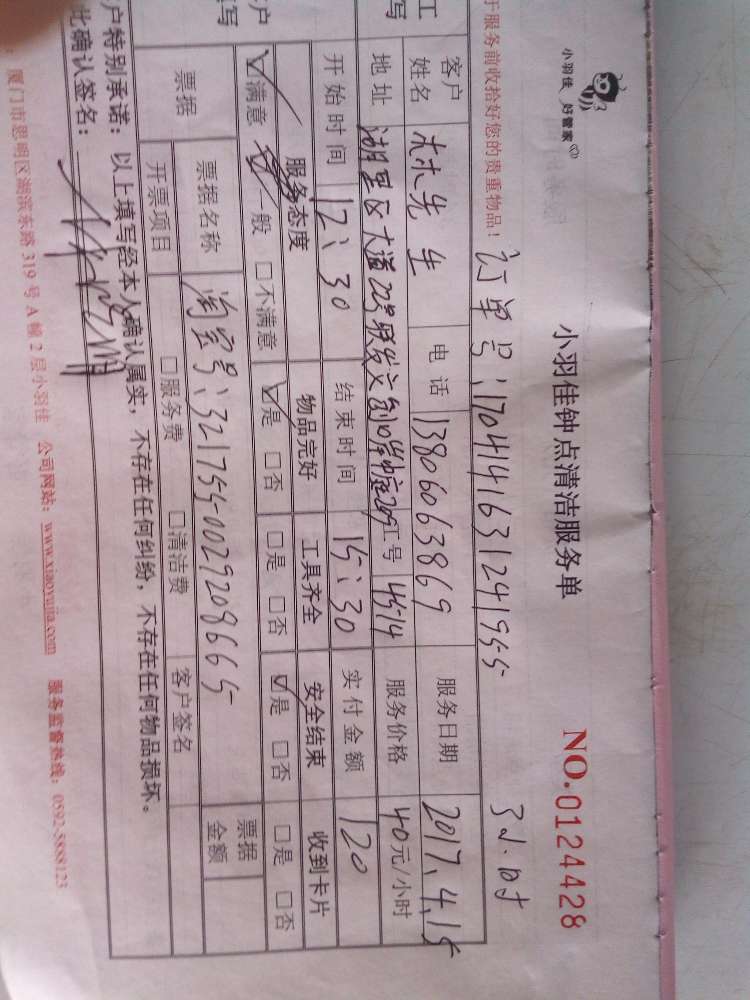 小羽佳 好管家
小羽佳钟点清洁服务单
NO.0124428
于服务前收拾好您的贵重物品！
订单号：1704141631241955
3小时
工
写
客户
姓名
先生
电话
13806063869
服务日期
2017.4.15
地址
湖里区大道22号联发文创口岸
工号
4514
服务价格
40元/小时
开始时间
12:30
结束时间
15:30
实付金额
120
户
写
服务态度
物品完好
工具齐全
安全结束
收到卡片
满意 一般 不满意
是 否
是 否
是 否
是 否
票据
票据名称
淘宝号：321755-0029208665
票据
金额
开票项目
服务费
清洁费
客户签名
户特别承诺：以上填写经本人确认属实，不存在任何纠纷，不存在任何物品损坏。
此确认签名：
厦门市思明区湖滨东路319号A幢2层小羽佳 公司网站：www.xiaoyujia.com 服务监督热线：0592-5888123